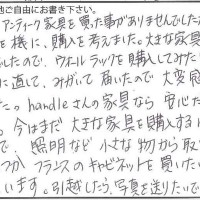 他ご自由にお書き下さい。
アンティーク家具を買った事がありませんでした
を機に、購入を考えました。大きな家具
だったので、ウォールラックを購入してみた
に直して、みがいて届いたので大変感
た。handleさんの家具なら安心だ
。今はまだ大きな家具を購入する
で、照明など小さな物から取
つかフランスのキャビネットを買いたい
います。引越したら、写真を送りたいで